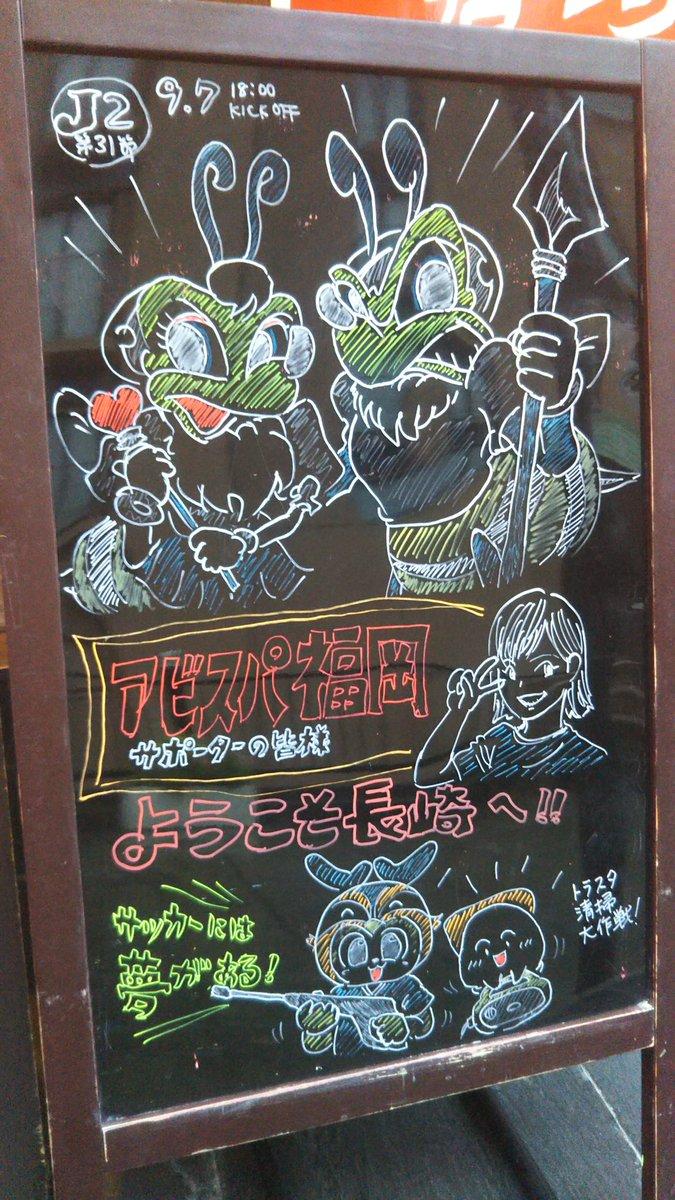 J2
第31節
9.7 18:00
KICK OFF
アビスパ福岡
サポーターの皆様
ようこそ長崎へ!!
サッカーには
夢がある!
トラスタ
清掃
大作戦!